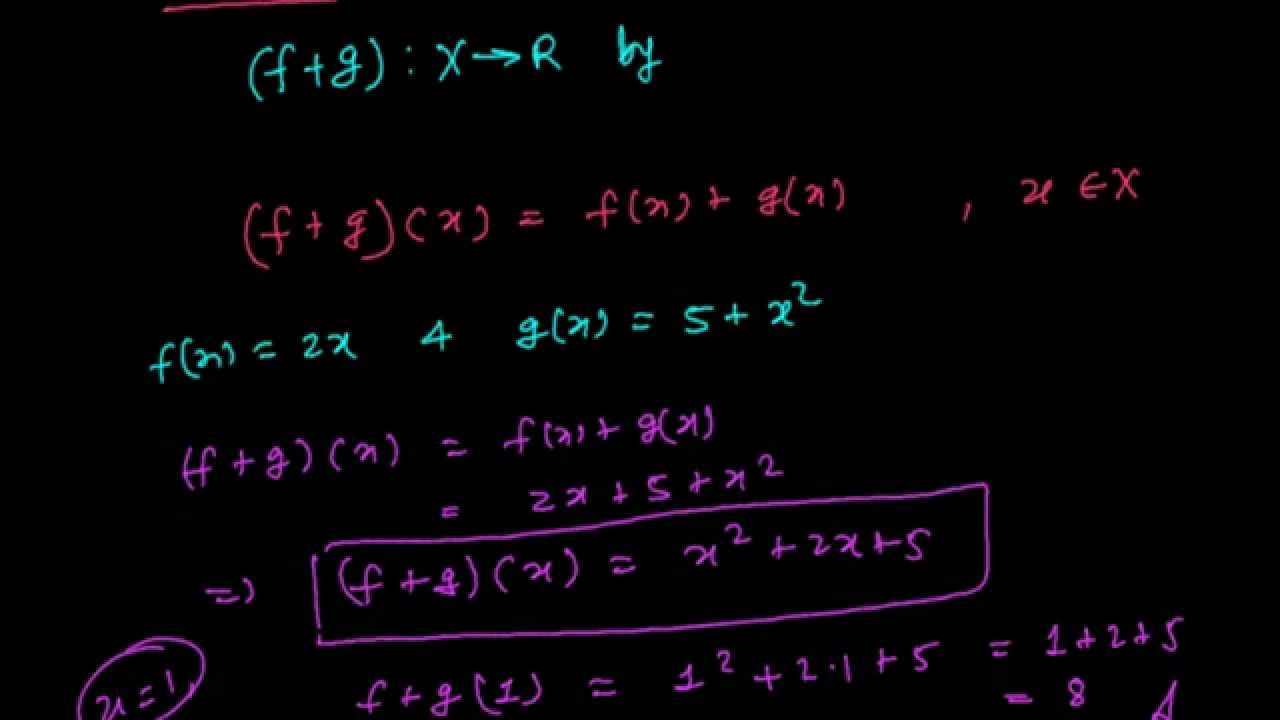 (f+g) : X→R by
(f+g)(x) = f(x) + g(x) , x ∈ X
f(x) = 2x & g(x) = 5 + x²
(f+g)(x) = f(x) + g(x)
= 2x + 5 + x²
=> (f+g)(x) = x² + 2x + 5
x=1, f+g(1) = 1² + 2·1 + 5 = 1+2+5
= 8